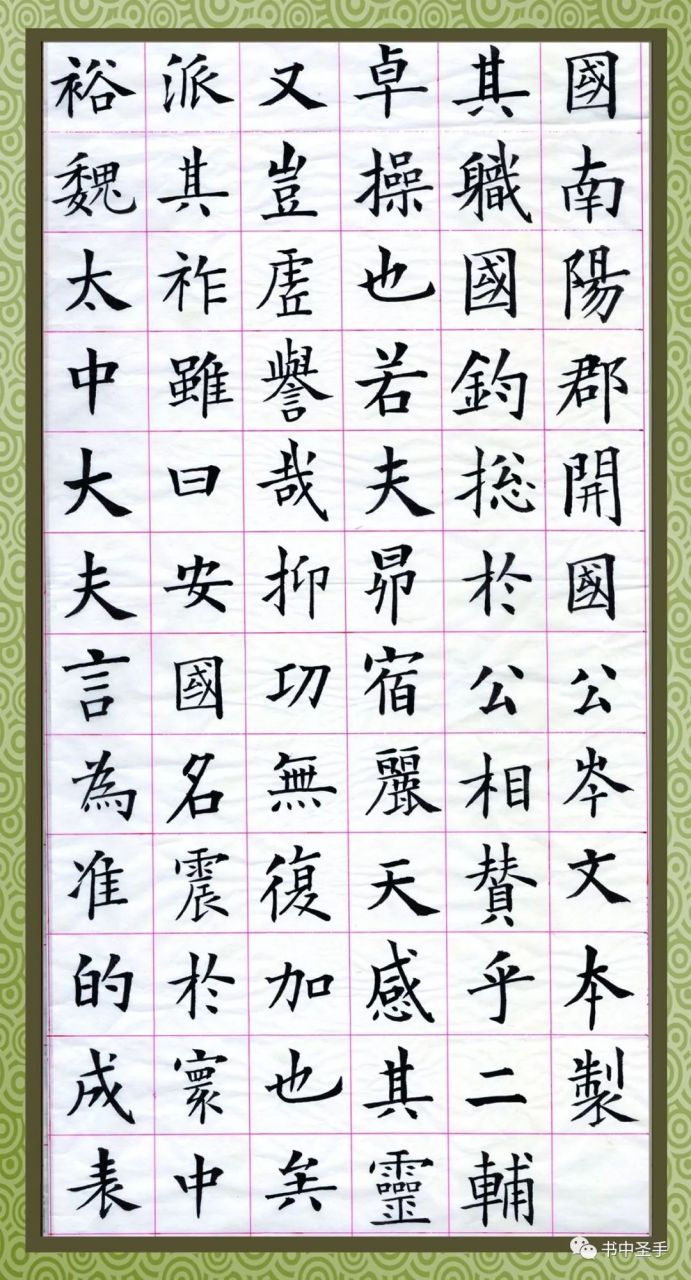 國南陽郡開國公岑文本製
其軄國鈞揔於公相賛乎二輔
卓操也若夫昴宿麗天感其靈
又豈虛譽哉抑功無復加也矣
派其祚雖曰安國名震於寰中
裕魏太中大夫言為准的成表
书中圣手